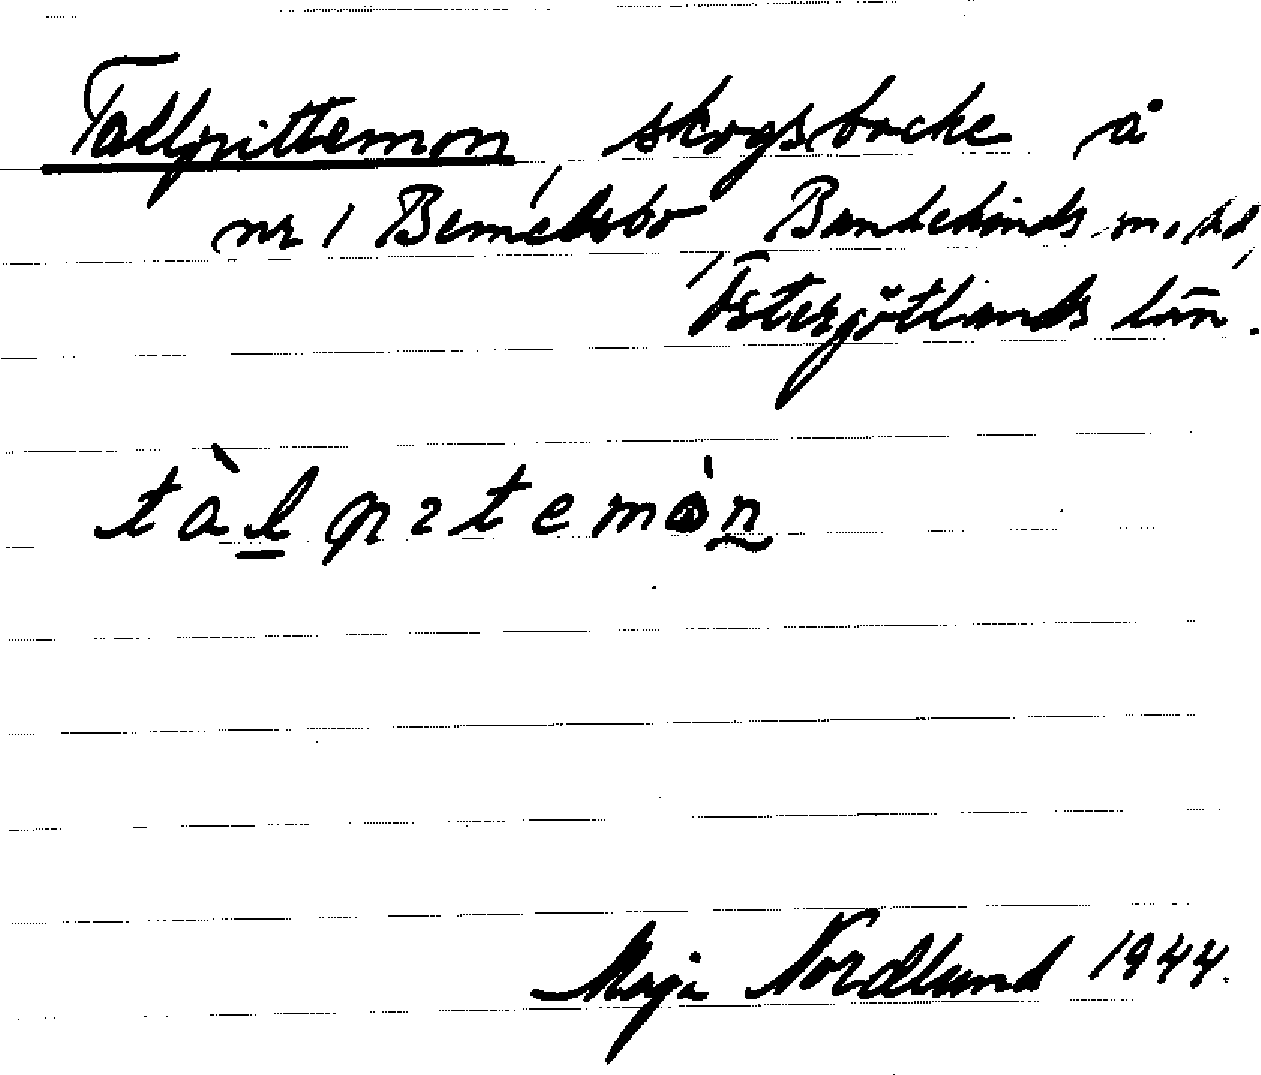 Tallpittemon, skogsbacke å
nr 1 Bemelsbo, Bankekinds sn, hd,
Östergötlands län.
tàlpıtemòn
Maja Nordlund 1944.